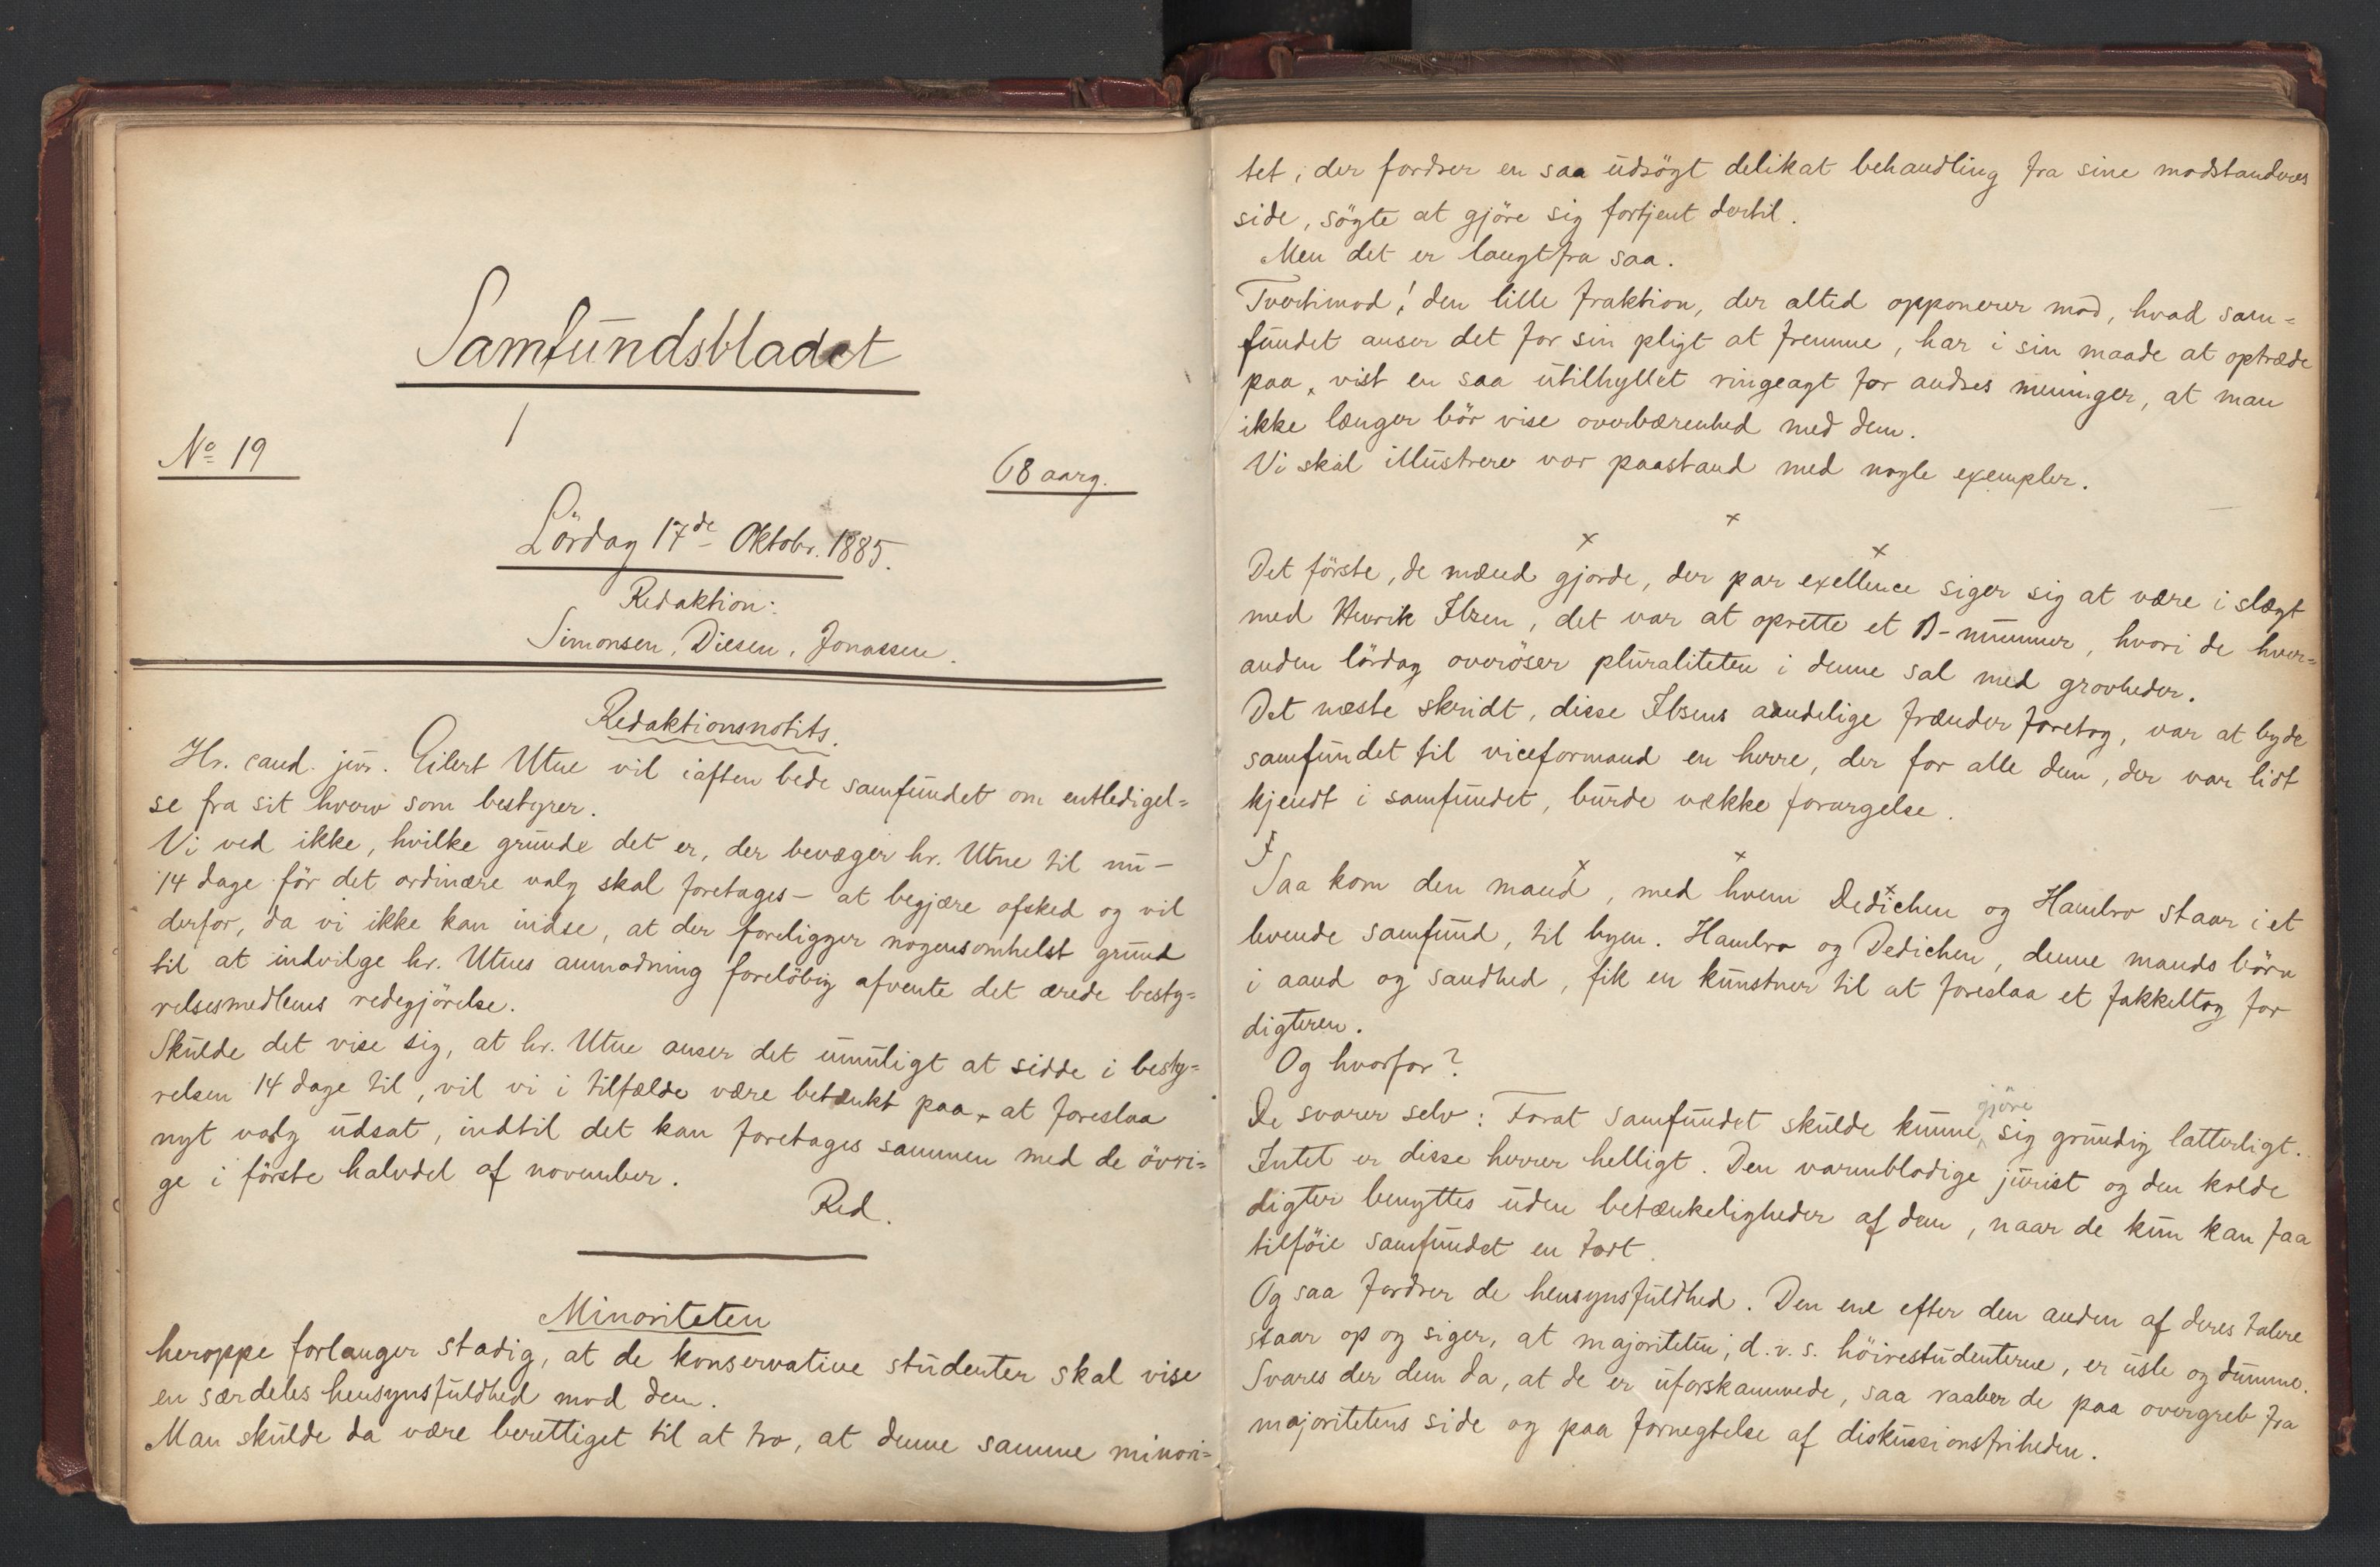 Samfundsbladet
No 19
68 aarg.
Lördag 17de Oktobr. 1885.
Redaktion:
Simonsen, Diesen, Jonassen.
Redaktionsnotits.
Hr. cand. jur. Eilert Utne vil iaften bede samfundet om entledigel=
se fra sit hverv som bestyrer.
Vi ved ikke, hvilke grunde det er, der bevæger hr. Utne til nu –
14 dage för det ordinære valg skal foretages – at begjære afsked og vil
derfor, da vi ikke kan indse, at der foreligger nogensomhelst grund
til at indvilge hr. Utnes anmodning foreløbig afvente det ærede besty=
relsesmedlems redegjörelse.
Skulde det vise sig, at hr. Utne anser det umuligt at sidde i besty=
relsen 14 dage til, vil vi i tilfælde være betænkt paa at foreslaa
nyt valg udsat, indtil det kan foretages sammen med de övri=
ge i förste halvdel af november.
Red.
Minoriteten
heroppe forlanger stadig, at de konservative studenter skal vise
en særdeles hensynsfuldhed mod dem.
Man skulde da være berettiget til at tro, at denne samme minori=
tet, der fordrer en saa udsögt delikat behandling fra sine modstanderes
side, sögte at gjöre sig fortjent dertil.
Men det er langtfra saa.
Tvertimod! den lille fraktion, der altid opponerer mod, hvad sam=
fundet anser det for sin pligt at fremme, har i sin maade at optræde
paa, vist en saa utilhyllet ringeagt for andres meninger, at man
ikke længer bör vise overbærenhed med dem.
Vi skal illustrere vor paastand med nogle exempler.
x x x
Det förste, de mænd gjorde, der par exellence siger sig at være i slægt
med Henrik Ibsen, det var at oprette et B-nummer, hvori de hver=
anden lördag overöser pluraliteten i denne sal med grovheder.
Det næste skridt, disse Ibsens aandelige frænder foretog, var at byde
samfundet til viceformand en herre, der for alle dem, der var lidt
kjendt i samfundet, burde vække forargelse.
x x x
Saa kom den mand, med hvem Dedichen og Hambro staar i et
levende samfund, til byen. Hambro og Dedichen, denne mands börn
i aand og sandhed, fik en kunstner til at foreslaa et fakkeltog for
digteren.
Og hvorfor?
De svarer selv: Forat samfundet skulde kunne gjöre sig grundig latterligt.
Intet er disse herrer helligt. Den varmblodige jurist og den kolde
digter benyttes uden betænkeligheder af dem, naar de kun kan faa
tilföie samfundet en tort.
Og saa fordrer de hensynsfuldhed. Den ene efter den anden af deres talere
staar op og siger, at majoriteten, d.v.s. höirestudenterne, er usle og dumme.
Svares der dem da, at de er uforskammede, saa raaber de paa overgreb fra
majoritetens side og paa fornegtelse af diskussionsfriheden.